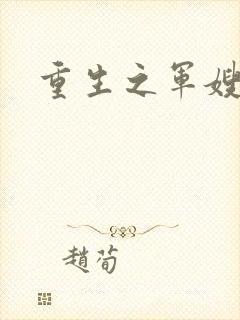 重生之军嫂
趙荀